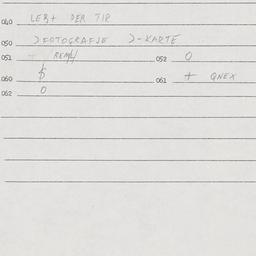 040 LEBT DER TIR
050 >FOTOGRAFJE >-KARTE
051 052 0
060 $ 061 + QNEX
062 0